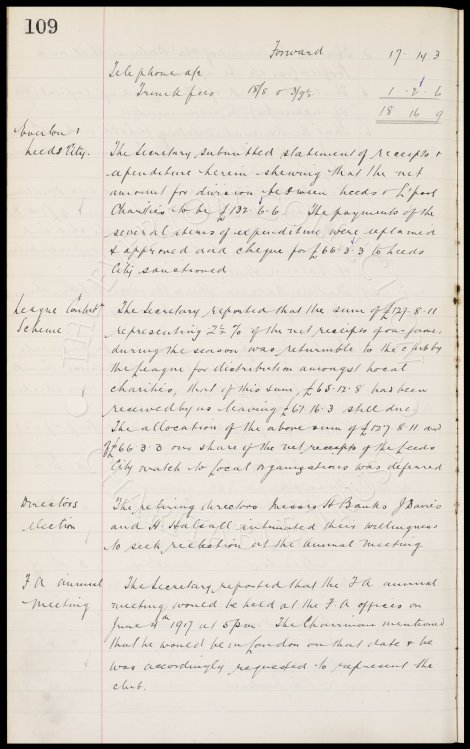 109
Forward 17. 14 3
Telephone a/c
Trunk fees 18/8 & 3/9½ 1. 2. 6
18 16 9
Everton v
Leeds City. The Secretary submitted statement of receipts &
expenditure herein shewing that the net
amount for division between Leeds & L'pool
Charities to be £132. 6. 6. The payments of the
several items of expenditure were explained
& approved and cheque for £66. 3. 3 to Leeds
City sanctioned
League Contribn
Scheme The Secretary reported that the sum of £127. 8. 11
representing 2½ % of the net receipts of our games
during the season was returnable to the club by
the League for distribution amongst local
charities, that of this sum, £65. 12. 8 had been
received by us leaving £61. 16. 3 still due.
The allocation of the above sum of £127 8. 11 and
of £66 3. 3 our share of the net receipts of the Leeds
City match to local organisations was deferred
Directors
election The retiring directors Messrs H Banks J Davies
and H. Halsall intimated their willingness
to seek reelection at the annual meeting
F A annual
meeting The Secretary reported that the F A annual
meeting would be held at the F. A offices on
June 1917 at 5 pm. The Chairman mentioned
that he would be in London on that date & he
was accordingly requested to represent the
club.